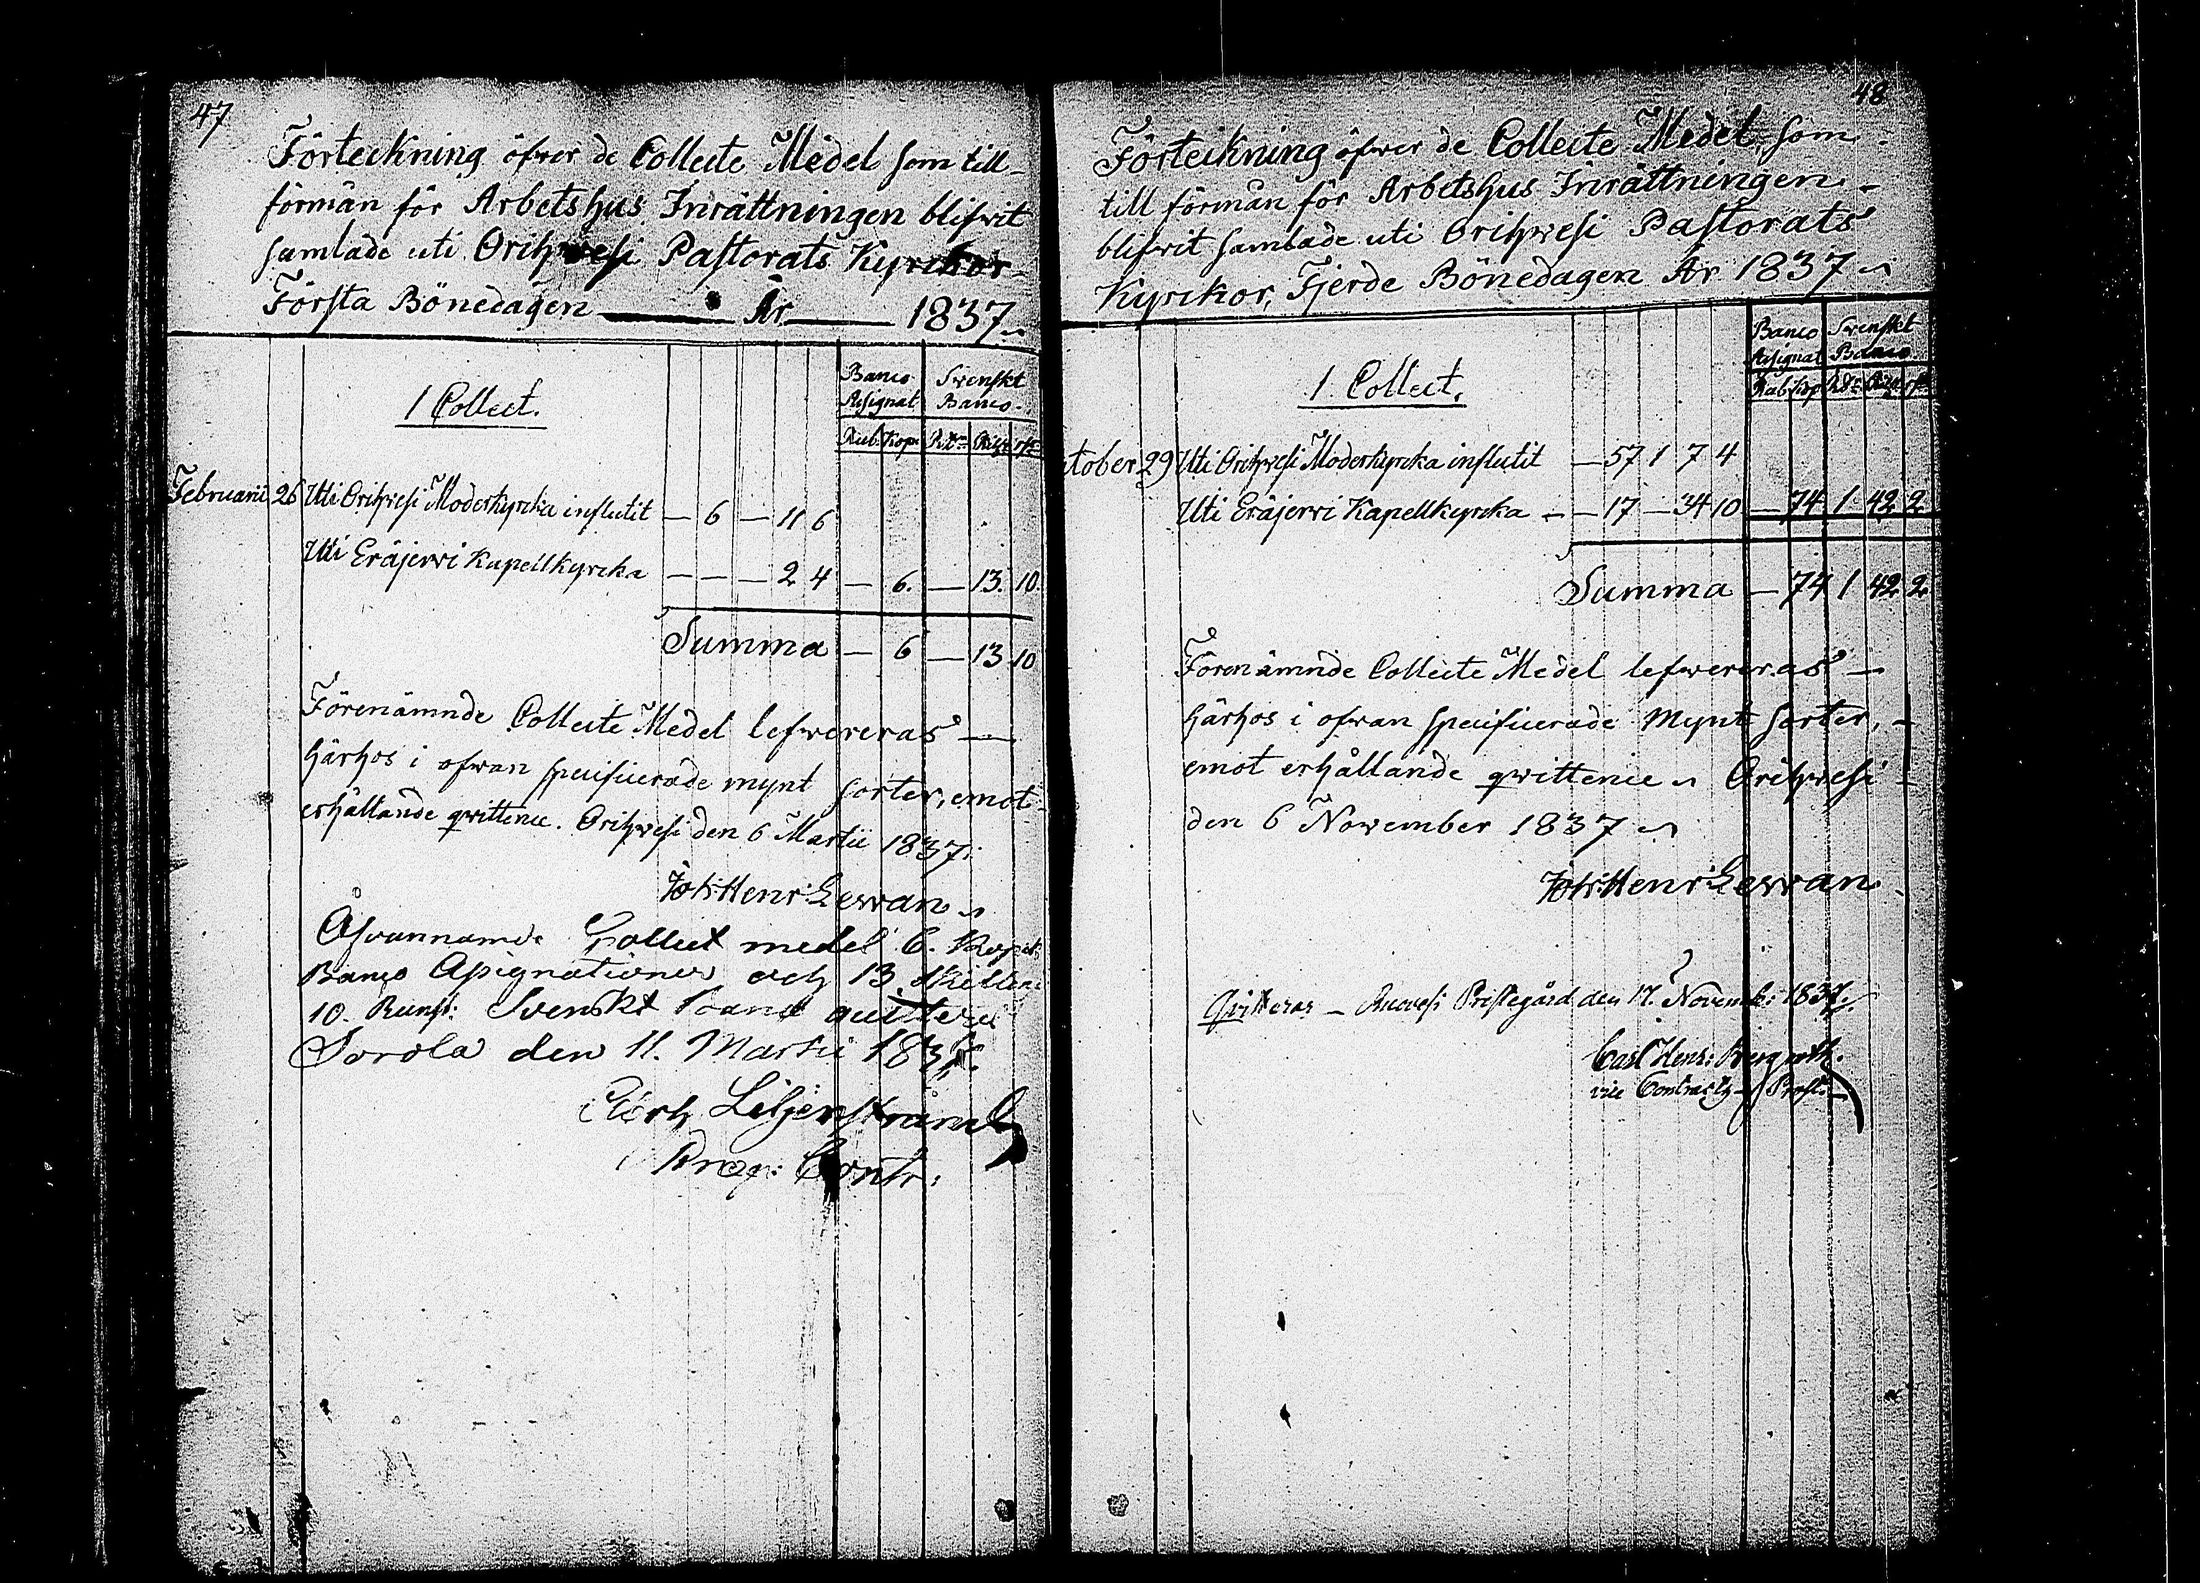 47
Förteckning öfwer de Collecte Medel som till-
förmån för Arbetshus Inrättningen blifwit
samlade uti Orihwesi Pastorats Kyrckor
Första Bönedagen År 1837
Banco Assignat. Swenskt Banco.
1 Collect.
Rub. Kop. Rdr Skill. rst.
Februarii 26 Uti Orihwesi Moderkyrcka influtit — 6 — 11 6
Uti Eräjerwi Kapellkyrcka — — — 2 4 — 6. — 13. 10.
Summa — 6 — 13 10
Förenämnde Collecte Medel lefwereras —
härhos i ofwan specificerade mynt sorter, emot
erhållande qwittence. Orihwesi den 6 Martii 1837.
Joh: Henr: Lewan
Ofvannämde Collect medel 6. Kopek
Banco Assignationer och 13. skillin:
10. Runst: Svenskt Banco quitterar
Sorola den 11. Martii 1837.
Liljenstrand
Prop: Contr:
48
Förteckning öfwer de Collecte Medel, som
till förmån för Arbetshus Inrättningen
blifwit samlade uti Orihwesi Pastorats
Kyrckor, Fjerde Bönedagen År 1837
Banco Assignat Swenskt Banco
1. Collect.
Rub. Kop. Rdr Skill. rst.
ctober 29 Uti Orihwesi Moderkyrcka influtit — 57 1 7 4
Uti Eräjerwi Kapellkyrcka — — 17 — 34 10 — 74 1 42 2
Summa — 74 1 42 2
Förenämnde Collecte Medel lefwereras —
härhos i ofwan specificerade Mynt sorter, —
emot erhållande qwittence Orihwesi —
den 6 November 1837
Joh: Henr: Lewan
Quitteras — Ruovesi Prestegård den 17. Novemb: 1837.
Carl Henr: Bergroth.
vice Contracts Prost.